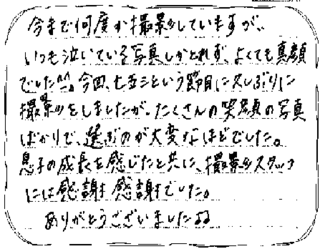 今まで何度か撮影していますが、
いつも泣いている写真しかとれず、よくても真顔
でした^^; 今回、七五三という節目に久しぶりに
撮影をしましたが、たくさんの笑顔の写真
ばかりで、選ぶのが大変なほどでした。
息子の成長を感じたと共に、撮影スタッフ
には感謝感謝でした。
ありがとうございました